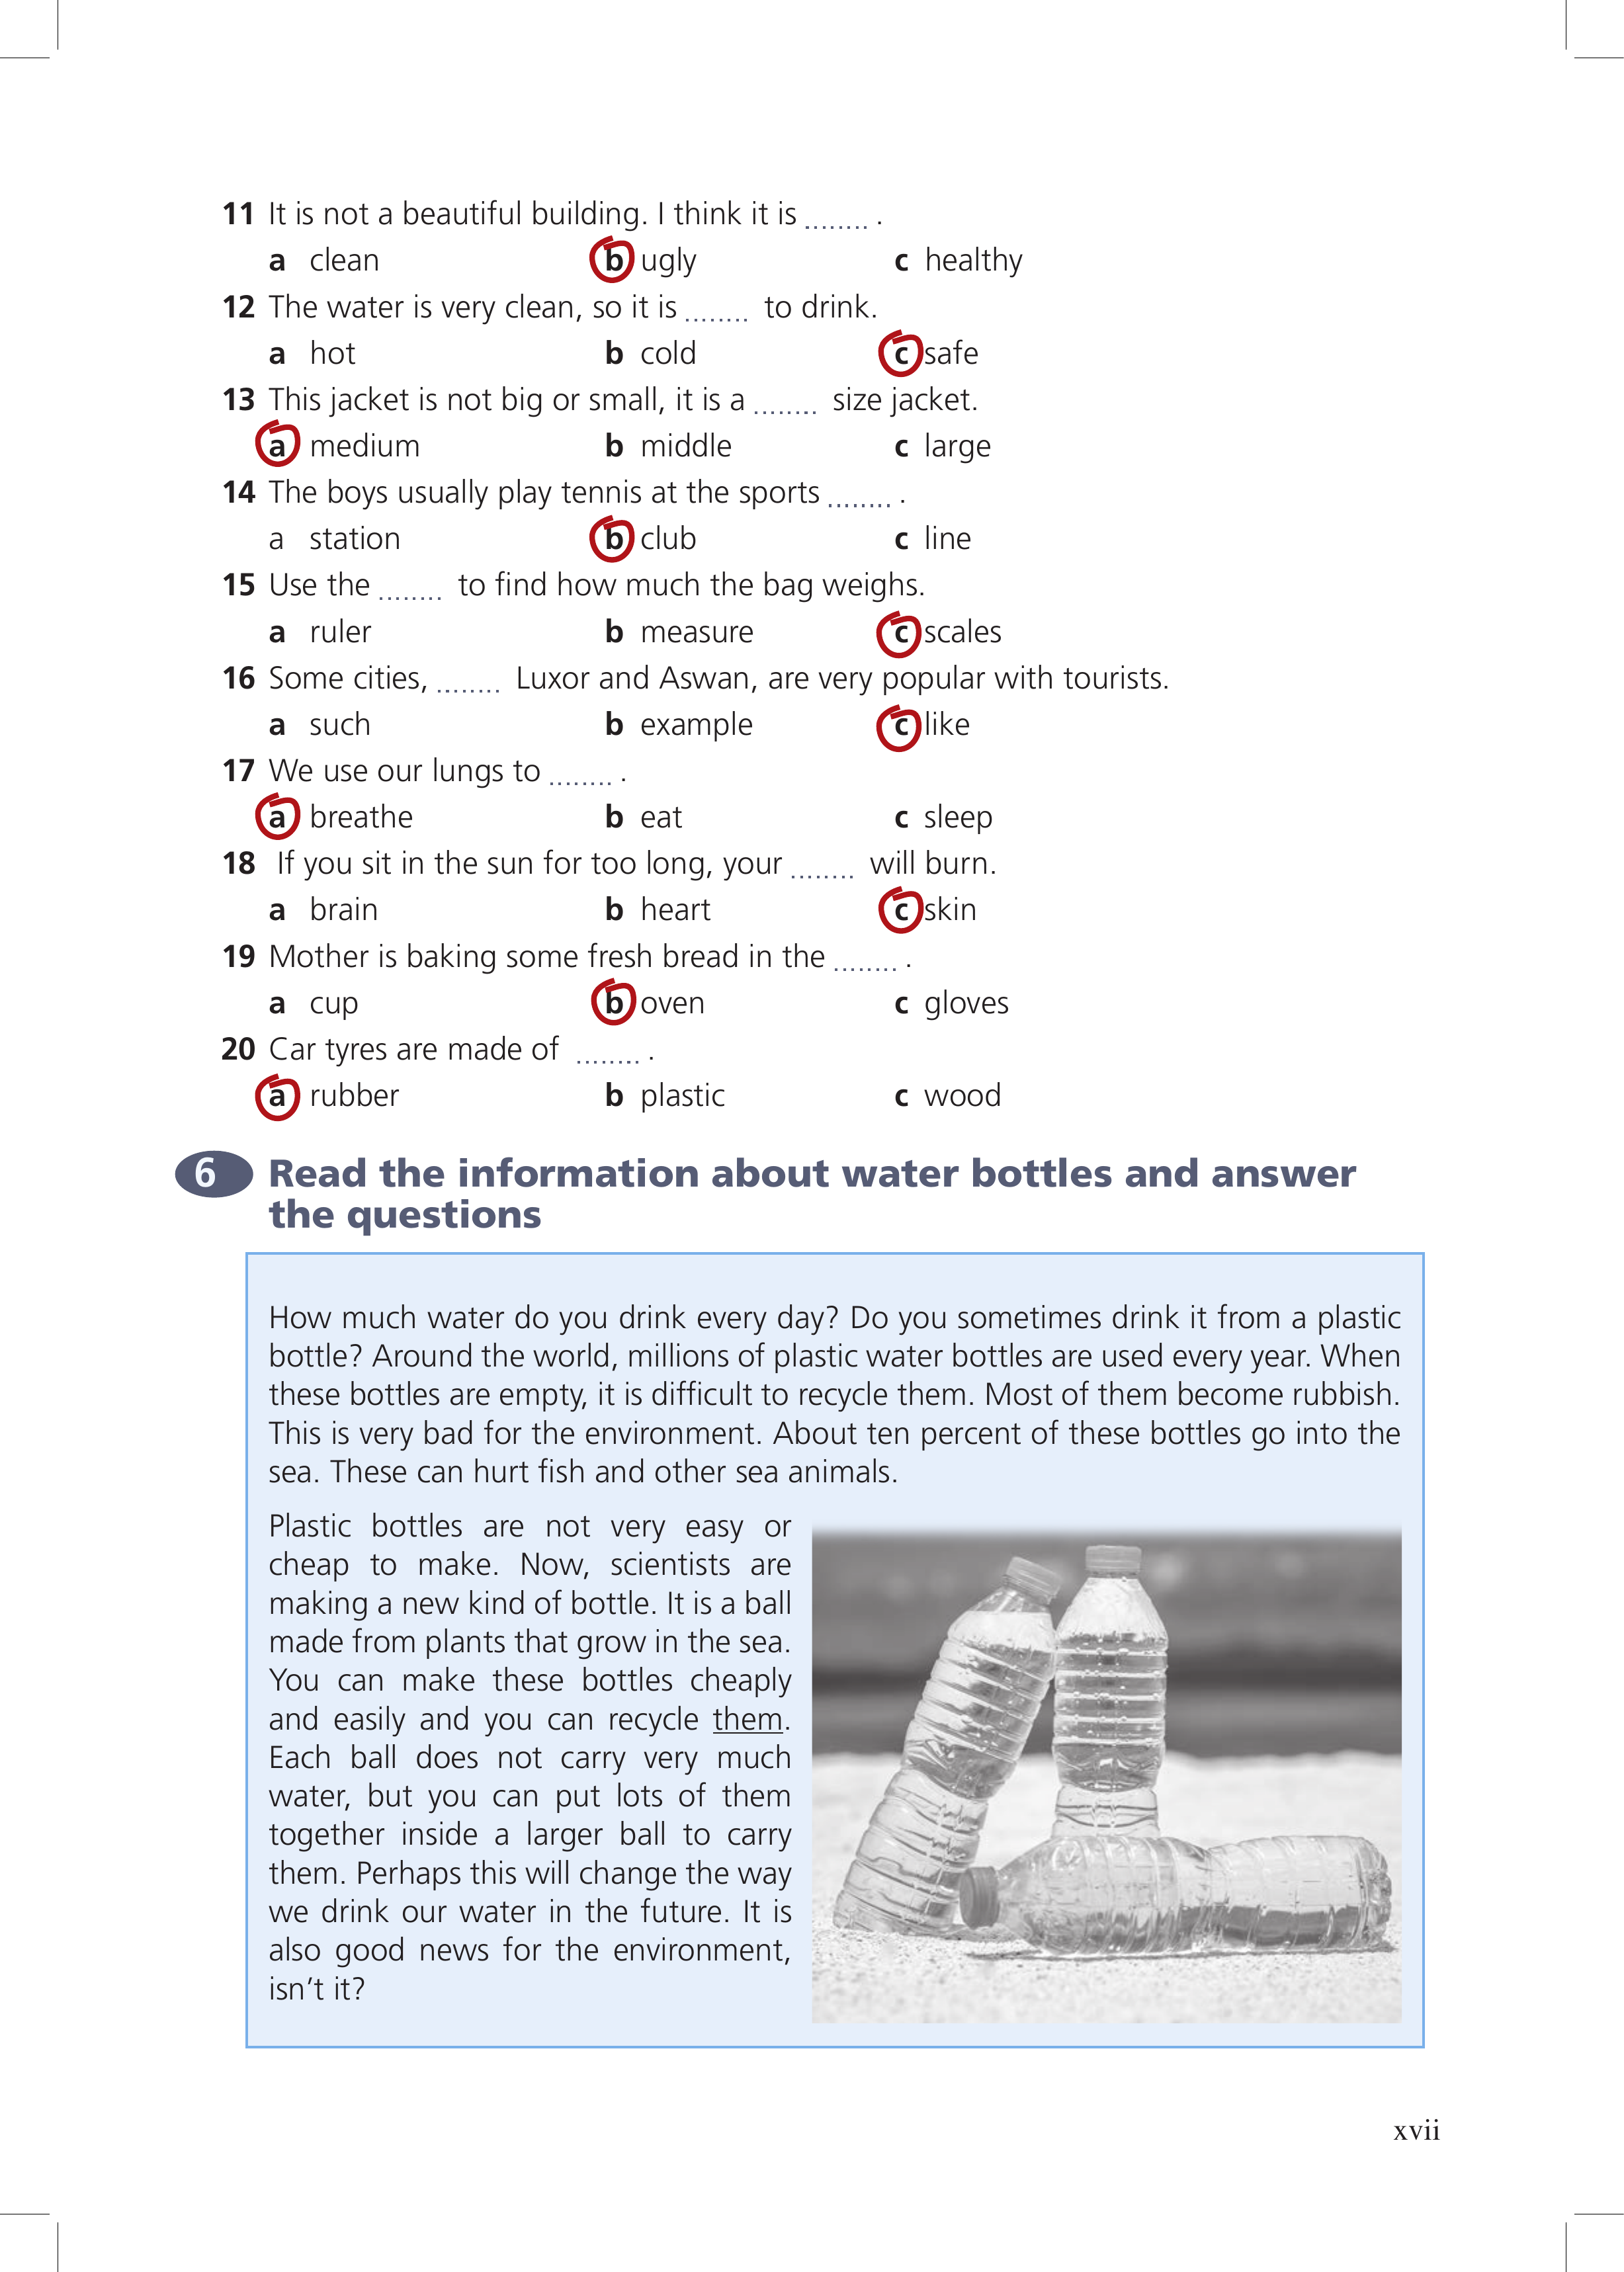 11 It is not a beautiful building. I think it is ........ .
a clean b ugly c healthy
12 The water is very clean, so it is ........ to drink.
a hot b cold c safe
13 This jacket is not big or small, it is a ........ size jacket.
a medium b middle c large
14 The boys usually play tennis at the sports ........ .
a station b club c line
15 Use the ........ to find how much the bag weighs.
a ruler b measure c scales
16 Some cities, ........ Luxor and Aswan, are very popular with tourists.
a such b example c like
17 We use our lungs to ........ .
a breathe b eat c sleep
18 If you sit in the sun for too long, your ........ will burn.
a brain b heart c skin
19 Mother is baking some fresh bread in the ........ .
a cup b oven c gloves
20 Car tyres are made of ........ .
a rubber b plastic c wood
6 Read the information about water bottles and answer
the questions
How much water do you drink every day? Do you sometimes drink it from a plastic
bottle? Around the world, millions of plastic water bottles are used every year. When
these bottles are empty, it is difficult to recycle them. Most of them become rubbish.
This is very bad for the environment. About ten percent of these bottles go into the
sea. These can hurt fish and other sea animals.
Plastic bottles are not very easy or
cheap to make. Now, scientists are
making a new kind of bottle. It is a ball
made from plants that grow in the sea.
You can make these bottles cheaply
and easily and you can recycle them.
Each ball does not carry very much
water, but you can put lots of them
together inside a larger ball to carry
them. Perhaps this will change the way
we drink our water in the future. It is
also good news for the environment,
isn't it?
xvii